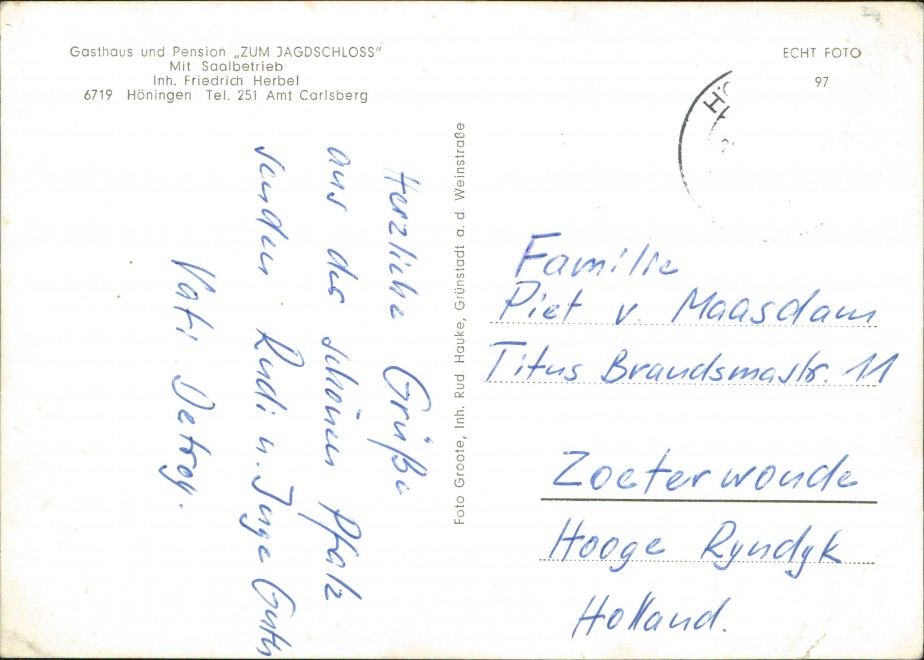 Gasthaus und Pension „ZUM JAGDSCHLOSS"
Mit Saalbetrieb
Inh. Friedrich Herbel
6719 Höningen Tel. 251 Amt Carlsberg
ECHT FOTO
97
Herzliche Grüße
aus der schönen Pfalz
senden Rudi u. Inge Guth
Vati Detroy.
Foto Groote, Inh. Rud Hauke, Grünstadt a. d. Weinstraße
Familie
Piet v. Maasdam
Titus Brandsmastr. 11
Zoeterwoude
Hooge Ryndyk
Holland.